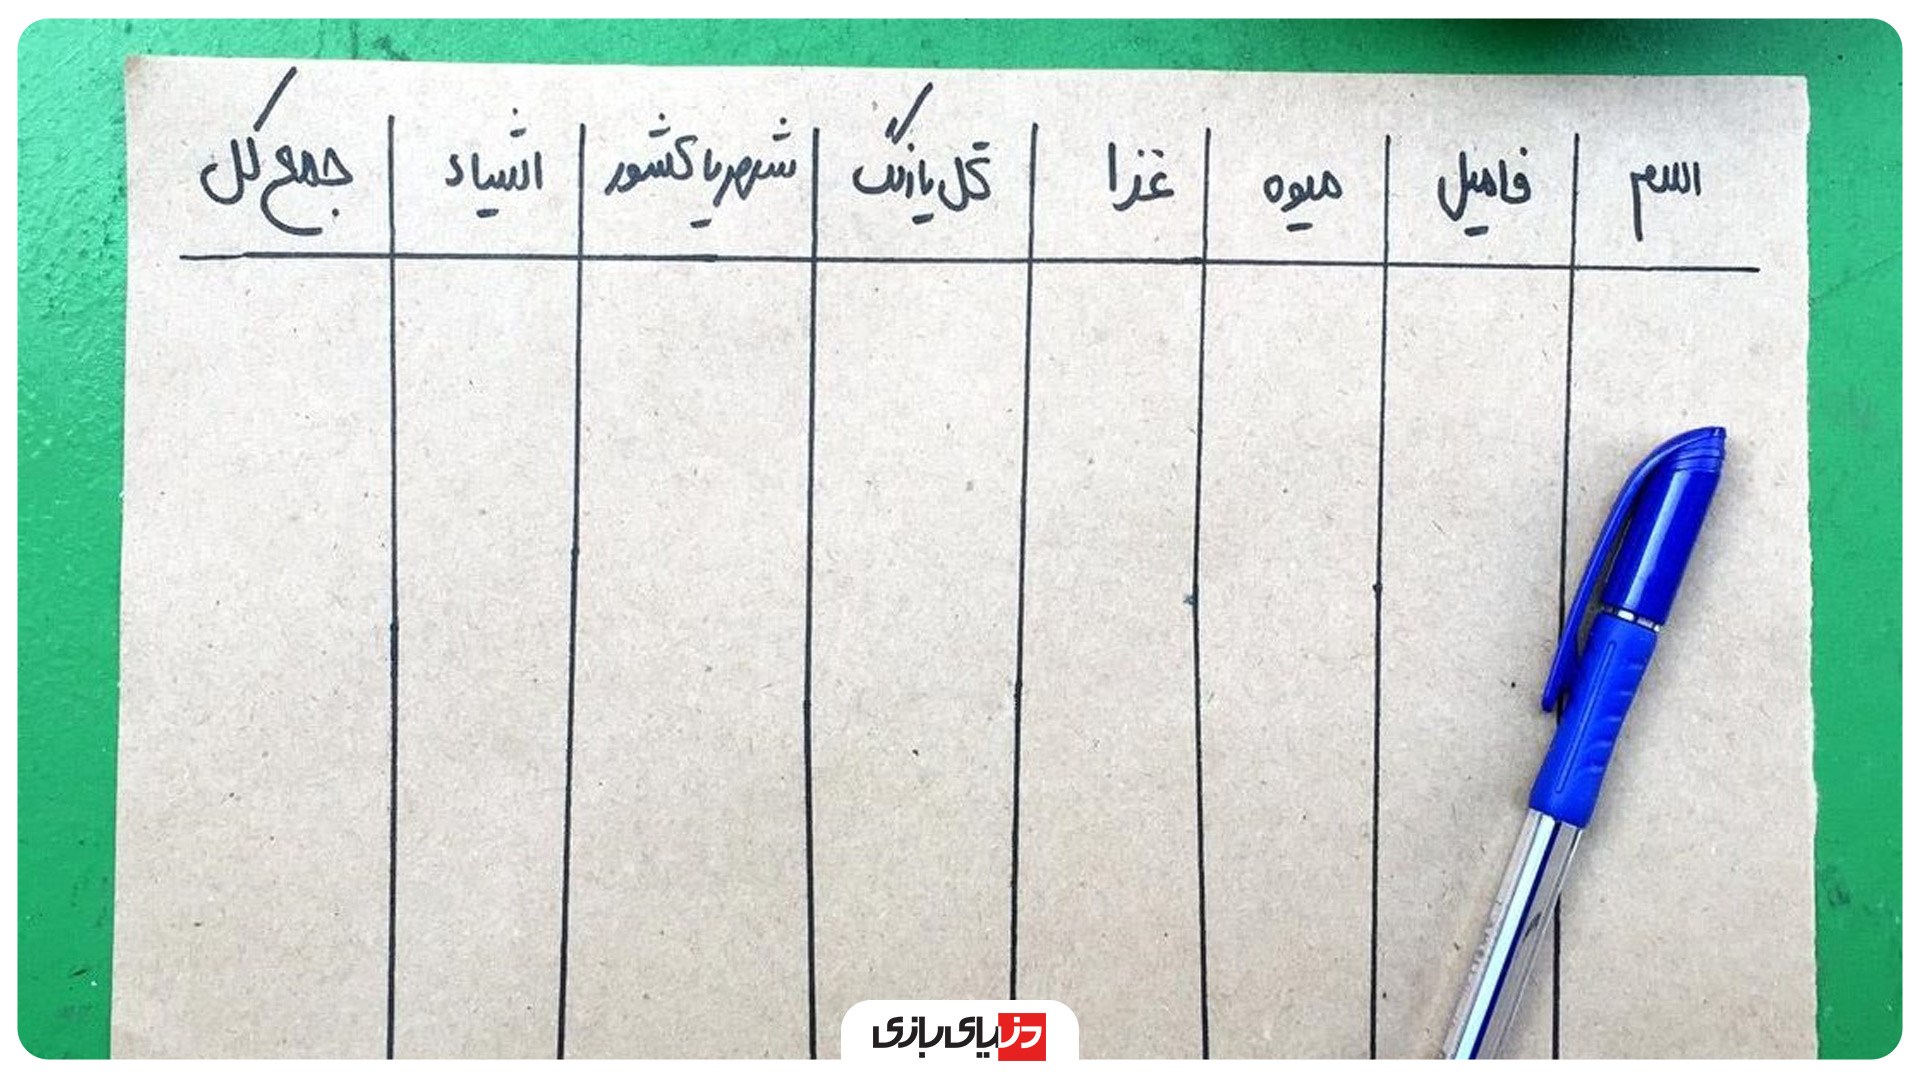 اسم فامیل میوه غذا گل یا رنگ شهر یا کشور اشیاء جمع کل
دنیای بازی